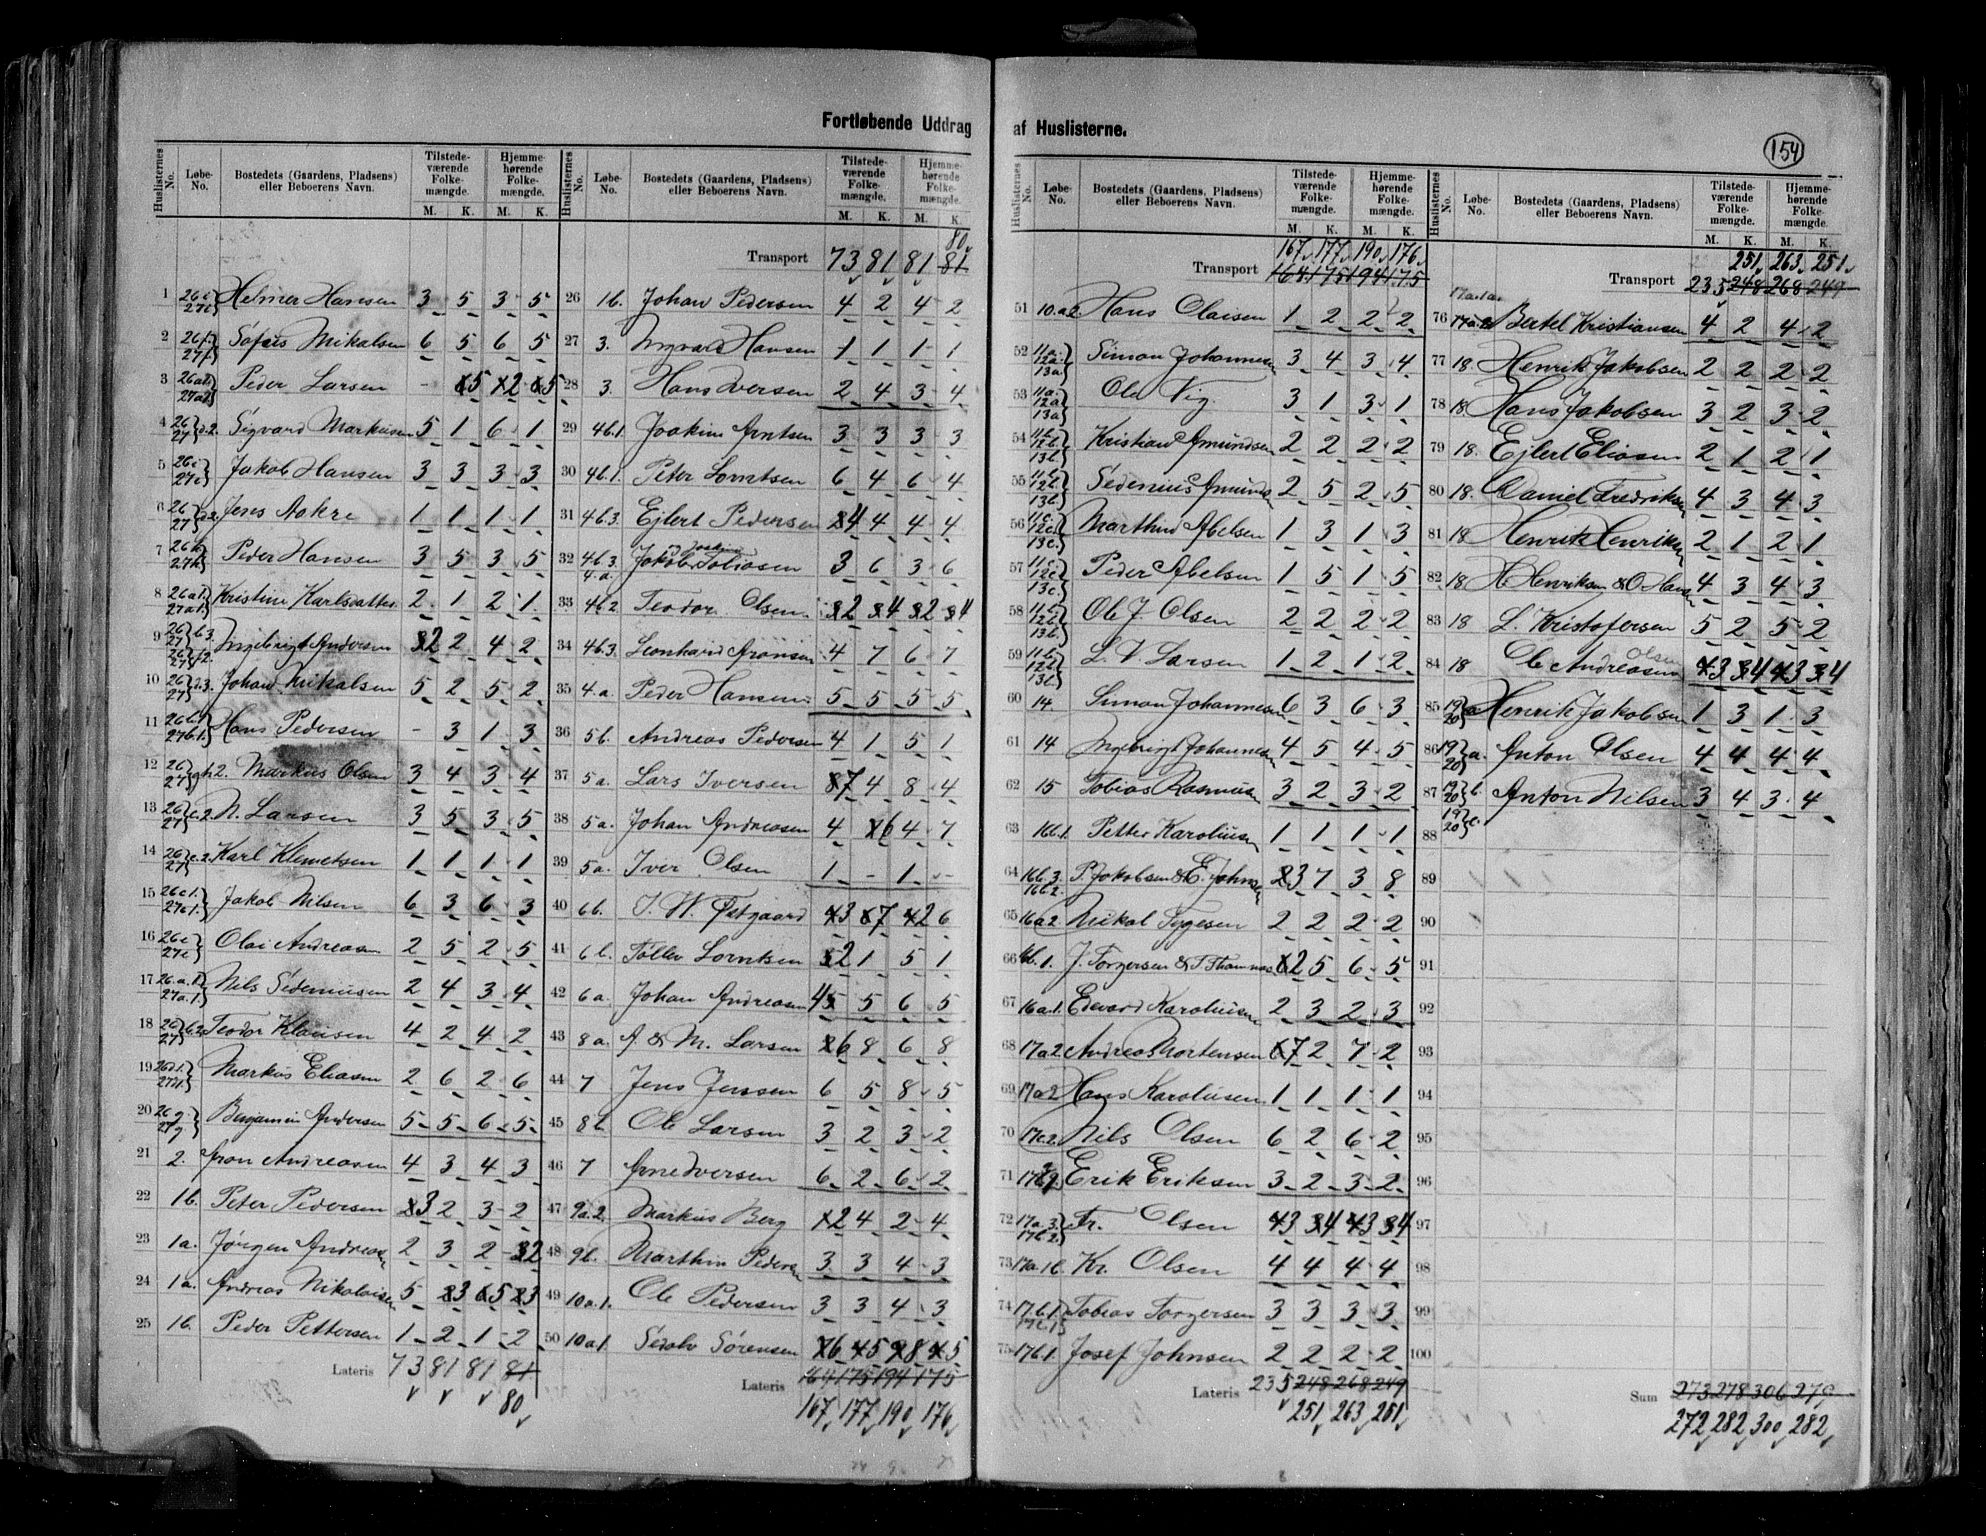 Fortløbende Uddrag af Huslisterne.
154
Huslisternes No. Løbe-No. Bostedets (Gaardens, Pladsens) eller Beboerens Navn. Tilstedeværende Folkemængde. Hjemmehørende Folkemængde.
M. K. M. K.
1 26e 27e Helmer Hansen 3 5 3 5
2 26f. 27f. Mikalsen 6 5 6 5
3 26a2 27a2 Peder Larsen - 5 2 5
4 26 27 d2. Sigvard Markussen 5 1 6 1
5 26e 27e Jakob Hansen 3 3 3 3
6 26 27 d2. Jens Aakre 1 1 1 1
7 26h 27h Peder Hansen 3 5 3 5
8 26a1. 27a1. Kristine Karlsdatter 2 1 2 1
9 26 27 b3. Ingebrigt Andersen 2 2 4 2
10 26 27 d3. Johan Mikalsen 5 2 5 2
11 26b.1 27b.1 Hans Pedersen - 3 1 3
12 26 27 gh2. Markus Olsen 3 4 3 4
13 26 27 c.2 N. Larsen 3 5 3 5
14 26 27 c.2 Karl Klemetsen 1 1 1 1
15 26c1. 27c1. Jakob Nilsen 6 3 6 3
16 26e 27e Olai Andreasen 2 5 2 5
17 26.a.1. 27a.1. Nils Sedeniusen 2 4 3 4
18 26 27 b2 Teodor Klausen 4 2 4 2
19 26d1. 27d1. Markus Eliasen 2 6 2 6
20 26g 27g Benjamin Andersen 5 5 6 5
21 2. Aron Andreasen 4 3 4 3
22 1b. Peter Pedersen 3 2 3 2
23 1a. Jørgen Andreasen 2 3 2 2
24 1a. Andreas Nikolaisen 5 3 5 3
25 1b. Peder Pettersen 1 2 1 2
Lateris 73 81 81 81
80
Huslisternes No. Løbe-No. Bostedets (Gaardens, Pladsens) eller Beboerens Navn. Tilstedeværende Folkemængde. Hjemmehørende Folkemængde.
M. K. M. K.
80
Transport 73 81 81 81
26 1b. Johan Pedersen 4 2 4 2
27 3. Ingvard Hansen 1 1 1 1
28 3. Hans Iversen 2 4 3 4
29 4b.1 Joakim Arntsen 3 3 3 3
30 4b.1 Peter Lorntsen 6 4 6 4
31 4b.3 Ejlert Pedersen 4 4 4 4
32 4b.3 4.a. Jakob og Joakim Tobiasen 3 6 3 6
33 4b.2 Teodor Olsen 2 4 2 4
34 4b.3 Leonhard Aronsen 4 7 6 7
35 4.a. Peder Hansen 5 5 5 5
36 5b. Andreas Pedersen 4 1 5 1
37 5a. Lars Iversen 7 4 8 4
38 5a. Johan Andreasen 4 6 4 7
39 5a. Iver Olsen 1 - 1 -
40 6b. J. W. Østgaard 3 7 2 6
41 6b. Tollev Lorntsen 2 1 5 1
42 6a. Johan Andreasen 4 5 6 5
43 8a. A & M. Larsen 6 8 6 8
44 7 Jens Jenssen 6 5 8 5
45 8b. Ole Larsen 3 2 3 2
46 7 Arne Iversen 6 2 6 2
47 9a.2. Markus Berg 2 4 2 4
48 9b. Marthin Pedersen 3 3 4 3
49 10a.1. Ole Pedersen 3 3 4 3
50 10a.1 Sørensen 6 5 8 5
Lateris 164 175 194 175
167 177 190 176
Huslisternes No. Løbe-No. Bostedets (Gaardens, Pladsens) eller Beboerens Navn. Tilstedeværende Folkemængde. Hjemmehørende Folkemængde.
M. K. M. K.
167 177 190 176
Transport 164 175 194 175
51 10.a2. Hans Olaisen 1 2 2 2
52 11a. 12a. 13a. Simon Johannesen 3 4 3 4
53 11a. 12a 13a Ole Vig. 3 1 3 1
54 11b. 12b. 13b. Kristian Amundsen 2 2 2 2
55 11b. 12b. 13b. Sedenius Amundsen 2 5 2 5
56 11c. 12c. 13c. Marthin Abelsen 1 3 1 3
57 11c. 12c. 13c. Peder Abelsen 1 5 1 5
58 11b. 12b. 13b. Ole J. Olsen 2 2 2 2
59 11b. 12b. 13b. L. V. Larsen 1 2 1 2
60 14 Simon Johannesen 6 3 6 3
61 14 Ingebrigt Johannesen 4 5 4 5
62 15 Tobias Rasmussen 3 2 3 2
63 16b.1. Petter Karoliusen 1 1 1 1
64 16b.3. 16b2. P. Jakobsen & E. Johnsen 3 7 3 8
65 16a2 Mikal Tygesen 2 2 2 2
66 16b.1. J. Torgersen & T. Thomas 2 5 6 5
67 16a.1. Edevard Karoliusen 2 3 2 3
68 17a2 Andreas Mortensen 7 2 7 2
69 17a2 Hans Karoliusen 1 1 1 1
70 17c2. Nils Olsen 6 2 6 2
71 Erik Eriksen 3 2 3 2
72 17a.3. 17b2. Fr. Olsen 3 4 3 4
73 Kr. Olsen 4 4 4 4
74 17b.1. 17c.1. Tobias Torgersen 3 3 3 3
75 17b.1. Josef Johnsen 2 2 2 2
Lateris 235 248 268 249
251 263 251
Huslisternes No. Løbe-No. Bostedets (Gaardens, Pladsens) eller Beboerens Navn. Tilstedeværende Folkemængde. Hjemmehørende Folkemængde.
M. K. M. K.
251 263 251
Transport 235 248 268 249
76 17a2 Bertel Kristiansen 4 2 4 2
77 18. Henrik Jakobsen 2 2 2 2
78 18 Hans Jakobsen 3 2 3 2
79 18. Ejlert Eliasen 2 1 2 1
80 18. Daniel Fredriksen 4 3 4 3
81 18 Henrik Henriksen 2 1 2 1
82 18 H. Henriksen & O. Hansen 4 3 4 3
83 18 L. Kristofersen 5 2 5 2
84 18 Ole Andreasen Olsen 3 4 3 4
85 19 20 a Henrik Jakobsen 1 3 1 3
86 19 20 a. Anton Olsen 4 4 4 4
87 19 20 b Anton Nilsen 3 4 3 4
88 19 20 c.
89
90
91
92
93
94
95
96
97
98
99
100
Sum 273 278 306 279
272 282 300 282